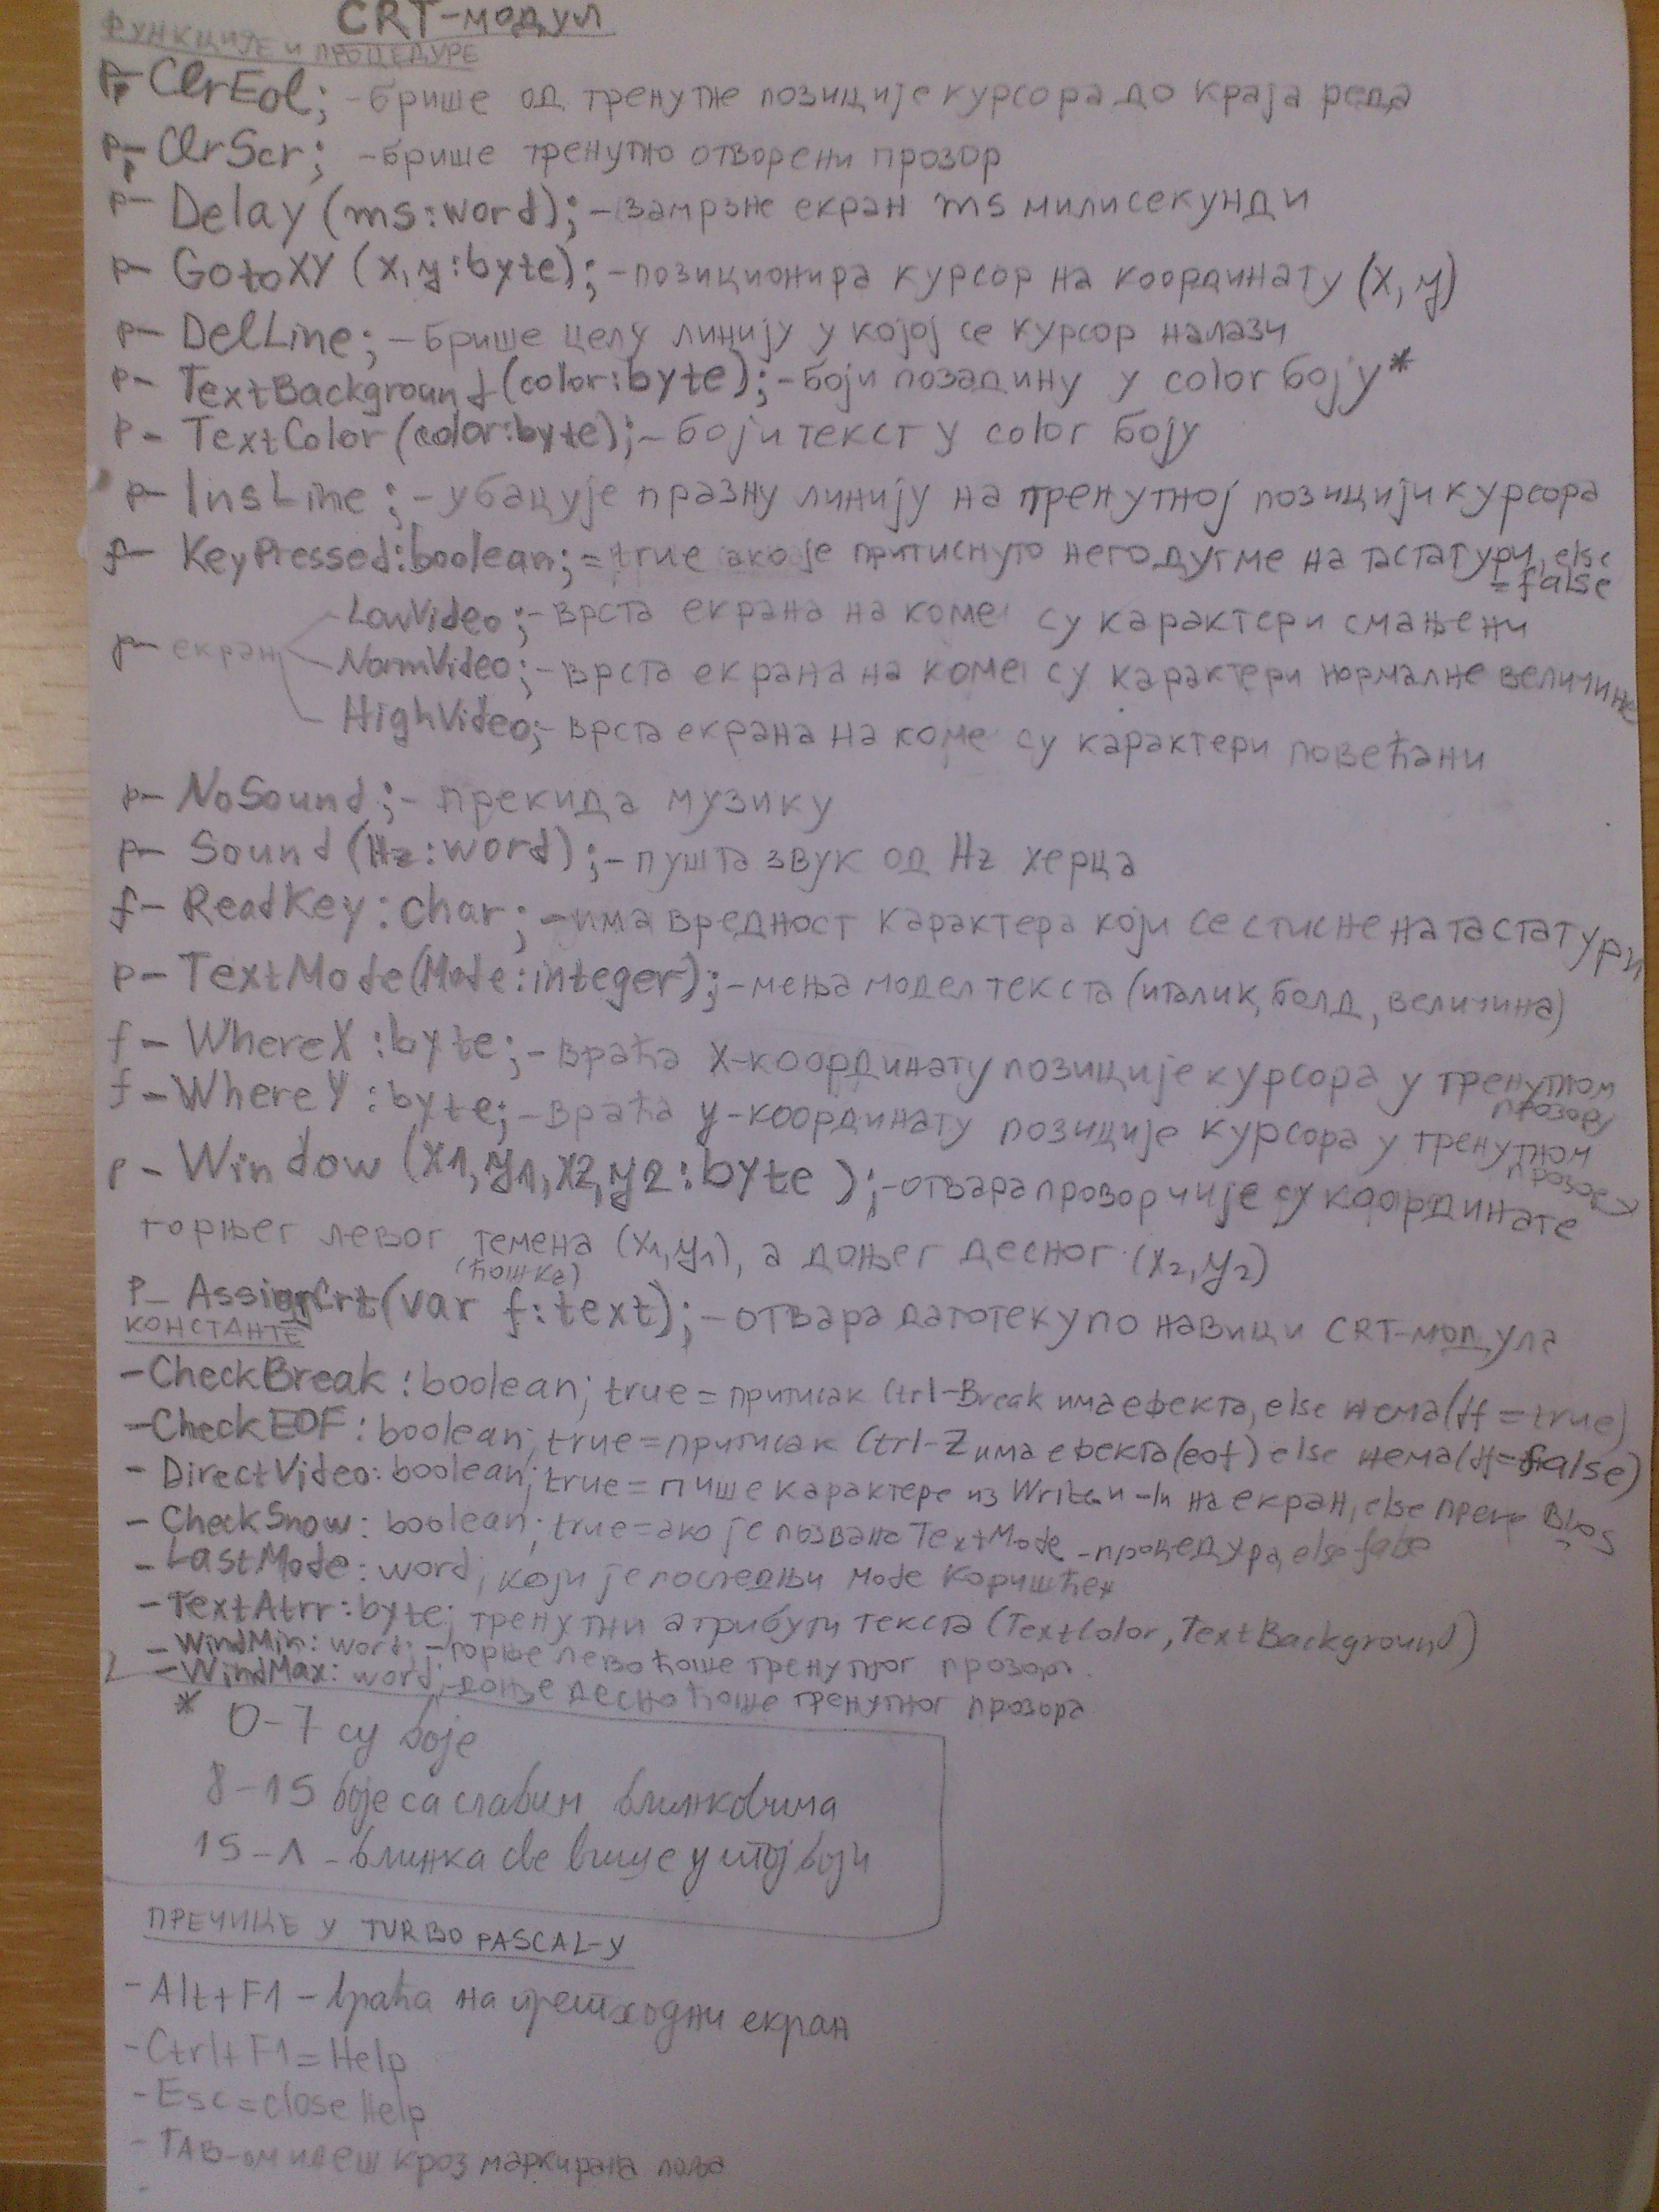 CRT-модул
ФУНКЦИЈЕ и ПРОЦЕДУРЕ
p- ClrEol; - брише од тренутне позиције курсора до краја реда
p- ClrScr; - брише тренутно отворени прозор
p- Delay (ms:word); - замрзне екран ms милисекунди
p- GotoXY (x,y:byte); - позиционира курсор на координату (x,y)
p- DelLine; - брише целу линију у којој се курсор налази
p- TextBackground (color:byte); - боји позадину у color боју*
p- TextColor (color:byte); - боји текст у color боју
p- InsLine; - убацује празну линију на тренутној позицији курсора
f- KeyPressed:boolean; = true ако је притиснуто неко дугме на тастатури, else
= false
LowVideo; - врста екрана на коме су карактери смањени
p- екран NormVideo; - врста екрана на коме су карактери нормалне величине
HighVideo; - врста екрана на коме су карактери повећани
p- NoSound; - прекида музику
p- Sound (Hz:word); - пушта звук од Hz херца
f- ReadKey:char; - има вредност карактера који се стисне на тастатури
p- TextMode(Mode:integer); - мења модел текста (италик, болд, величина)
f- WhereX:byte; - враћа X-координату позиције курсора у тренутном
прозору
f- WhereY:byte; - враћа y-координату позиције курсора у тренутном
прозору
p- Window (x1,y1,x2,y2:byte); - отвара прозор чије су координате
горњег левог темена (x1,y1), а доњег десног (x2,y2)
(ћошка)
p- AssignCrt(var f:text); - отвара датотеку по навици CRT-модула
КОНСТАНТЕ
- CheckBreak:boolean; true = притисак Ctrl-Break има ефекта, else нема (df = true)
- CheckEOF:boolean; true = притисак Ctrl-Z има ефекта (eof) else нема (df = false)
- DirectVideo:boolean; true = пише карактере из Write и -ln на екран, else преко BIOS
- CheckSnow:boolean; true = ако је позвана TextMode-процедура, else false
- LastMode:word; који је последњи mode коришћен
- TextAtrr:byte; тренутни атрибути текста (TextColor, TextBackground)
- WindMin:word; - горње лево ћоше тренутног прозора.
- WindMax:word; - доње десно ћоше тренутног прозора
* 0-7 су боје
8-15 боје са слабим блинковима
15-Λ - блинка све више у тој боји
ПРЕЧИЦЕ У TURBO PASCAL-У
- Alt+F1 - враћа на претходни екран
- Ctrl+F1 = Help
- Esc = close Help
- TAB-ом идеш кроз маркирана поља